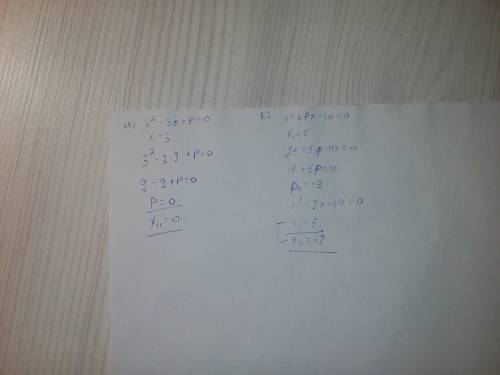 a) x² - 3x + P = 0
x₁ = 3
3² - 3·3 + P = 0
9 - 9 + P = 0
P = 0
x₁₁ = 0
b) x² + Px - 10 = 0
x₁ = 5
25 + 5p - 10 = 0
15 + 5p = 0
p = -3
x² - 3x - 10 = 0
x₁ = 5
x₁₁ = -2